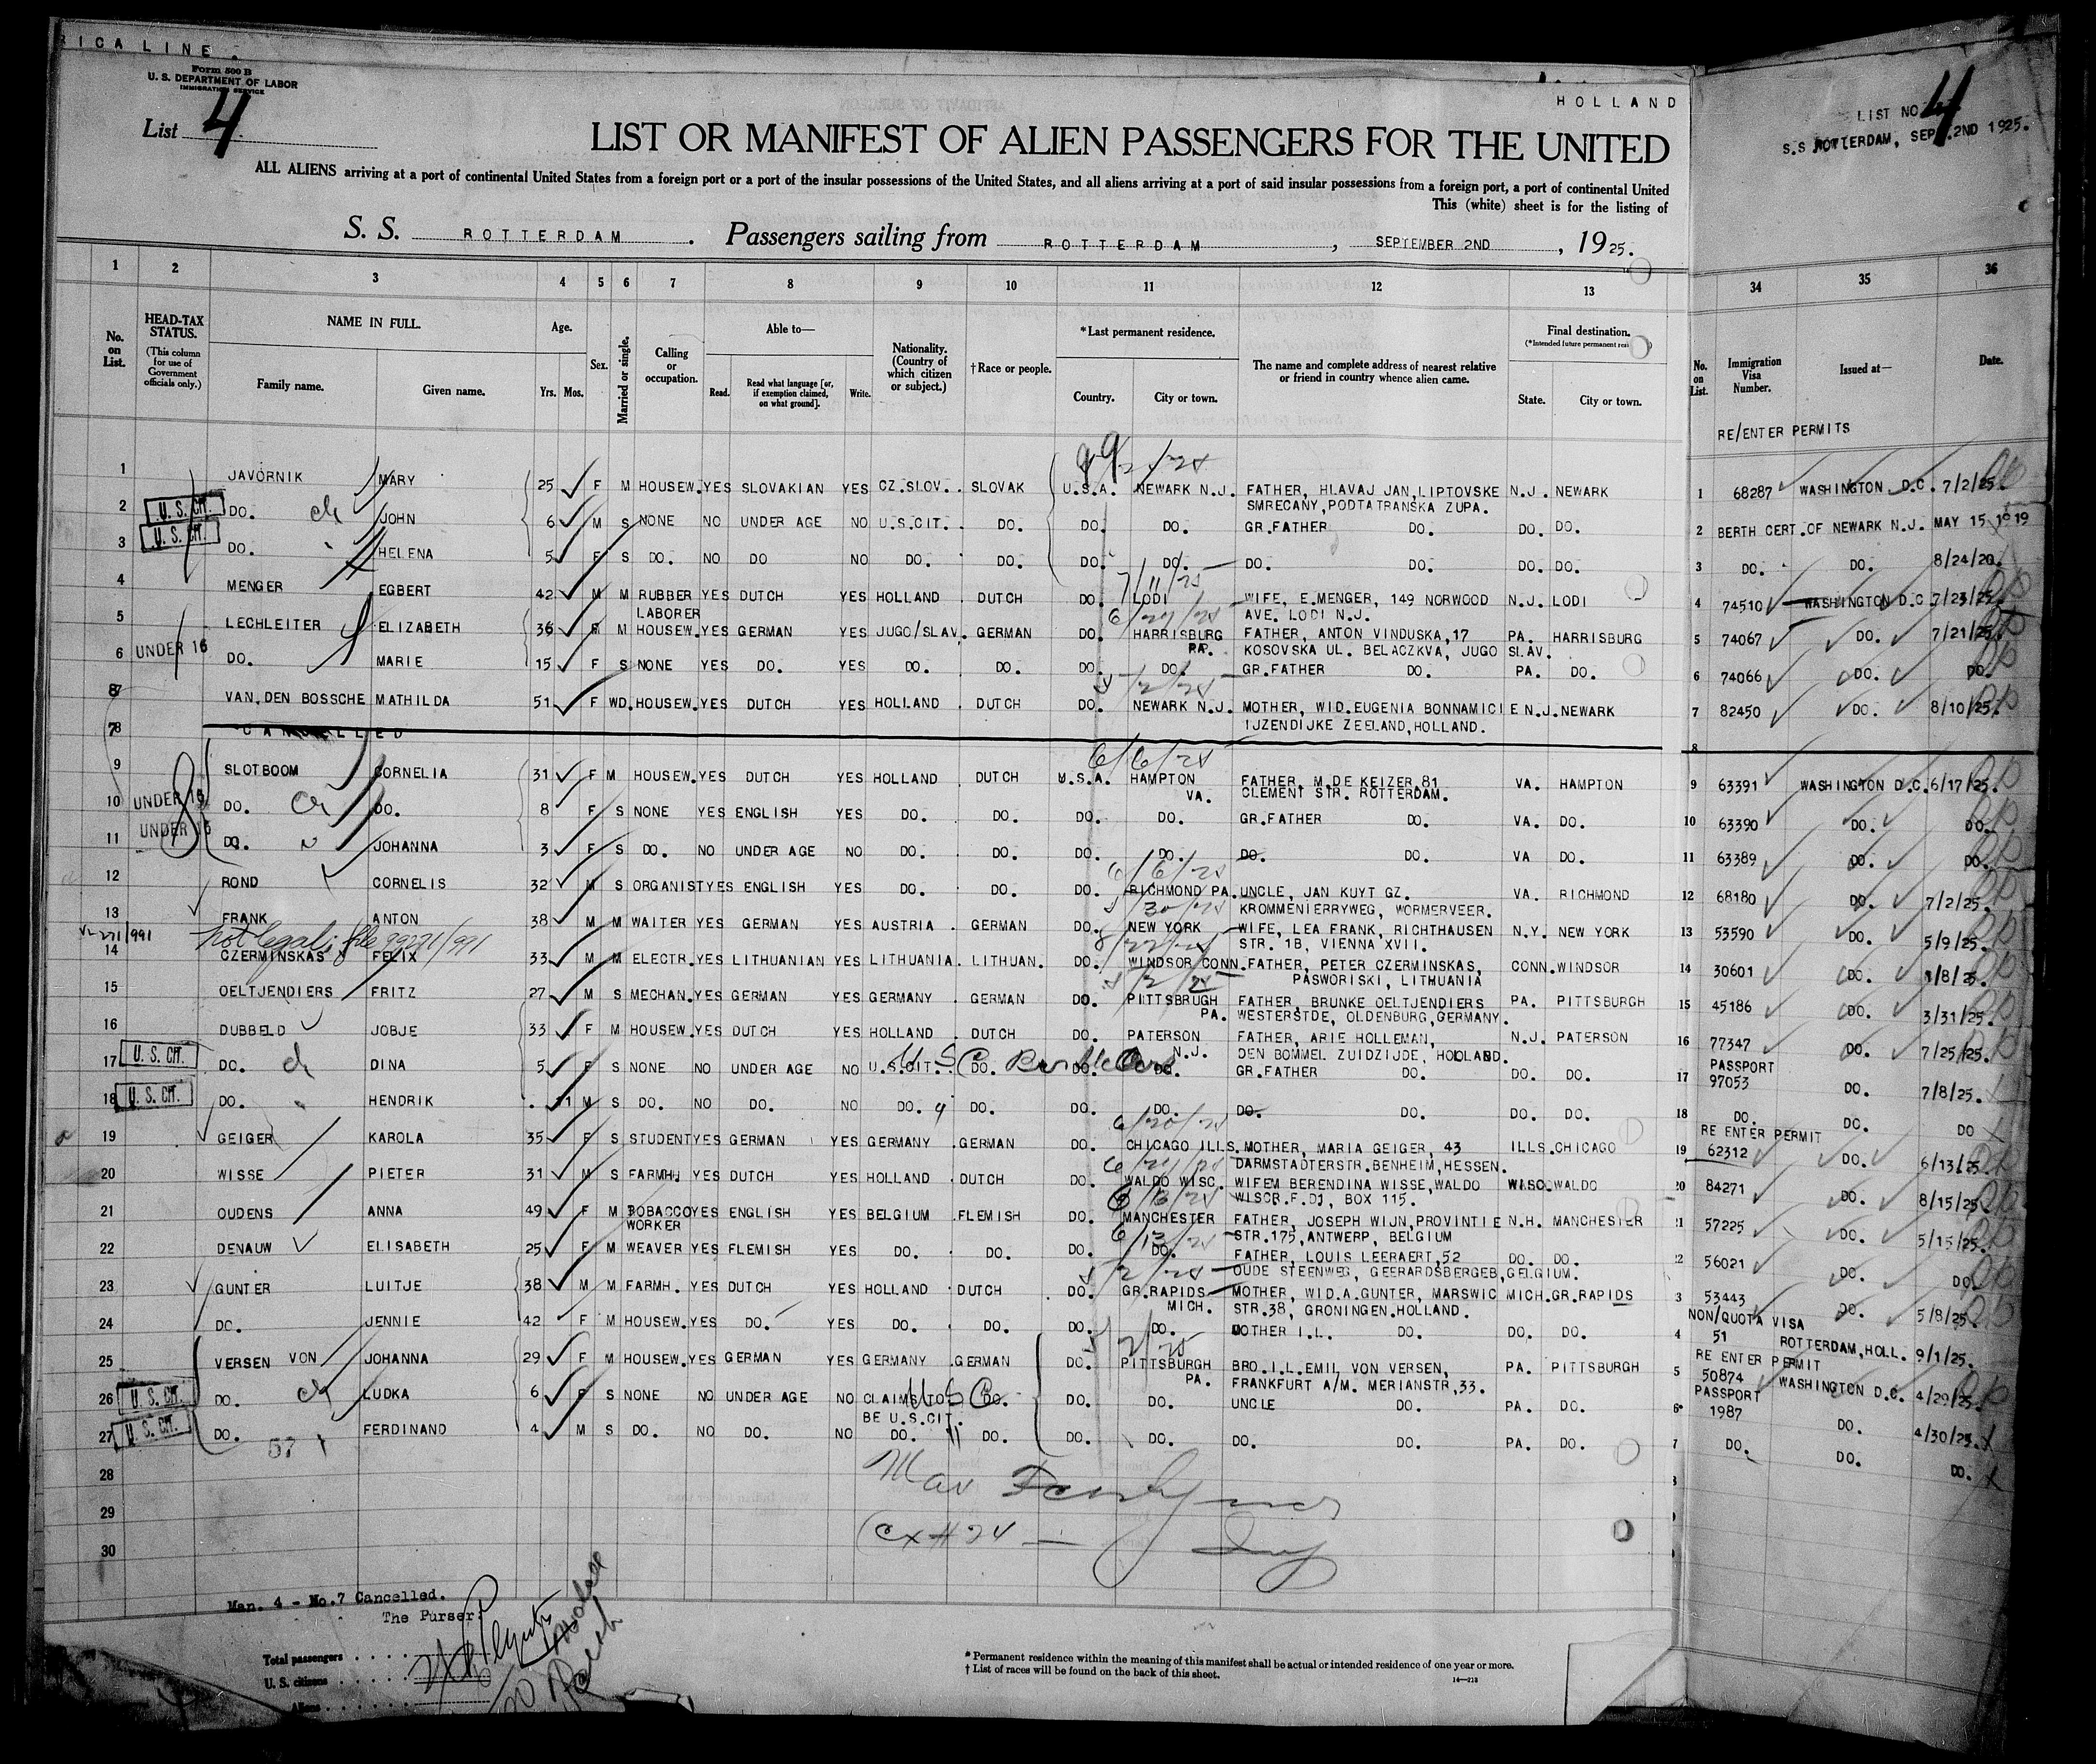 RICA LINE
Form 500 B
U. S. DEPARTMENT OF LABOR
IMMIGRATION SERVICE
HOLLAND
List 4
LIST NO 4
S.S ROTTERDAM, SEPT.2ND 1925.
LIST OR MANIFEST OF ALIEN PASSENGERS FOR THE UNITED
ALL ALIENS arriving at a port of continental United States from a foreign port or a port of the insular possessions of the United States, and all aliens arriving at a port of said insular possessions from a foreign port, a port of continental United
This (white) sheet is for the listing of
S. S. ROTTERDAM . Passengers sailing from ROTTERDAM , SEPTEMBER 2ND , 1925.
1 2 3 4 5 6 7 8 9 10 11 12 13 34 35 36
No. on List.
HEAD-TAX STATUS.
(This column for use of Government officials only.)
NAME IN FULL.
Family name. Given name.
Age.
Yrs. Mos.
Sex.
Married or single.
Calling or occupation.
Able to—
Read. Read what language [or, if exemption claimed, on what ground]. Write.
Nationality. (Country of which citizen or subject.)
†Race or people.
*Last permanent residence.
Country. City or town.
The name and complete address of nearest relative or friend in country whence alien came.
Final destination.
(*Intended future permanent
State. City or town.
No. on List.
Immigration Visa Number.
Issued at—
Date.
RE/ENTER PERMITS
1 JAVORNIK MARY 25 F M HOUSEW. YES SLOVAKIAN YES CZ.SLOV. SLOVAK U.S.A. NEWARK N.J. FATHER, HLAVAJ JAN,LIPTOVSKE N.J. NEWARK 1 68287 WASHINGTON D.C. 7/2/25.
SMRECANY,PODTATRANSKA ZUPA.
2 U. S. CIT. DO. JOHN 6 M S NONE NO UNDER AGE NO U.S.CIT. DO. DO. DO. GR.FATHER DO. DO. DO. 2 BERTH CERT.OF NEWARK N.J. MAY 15 1919
3 U. S. CIT. DO. HELENA 5 F S DO. NO DO NO DO. DO. DO. DO. DO. DO. DO. DO. 3 DO. DO. 8/24/20
4 MENGER EGBERT 42 M M RUBBER YES DUTCH YES HOLLAND DUTCH DO. LODI WIFE, E.MENGER, 149 NORWOOD N.J. LODI 4 74510 WASHINGTON D.C. 7/23/25.
LABORER AVE. LODI N.J.
5 LECHLEITER ELIZABETH 36 F M HOUSEW. YES GERMAN YES JUGO/SLAV. GERMAN DO. HARRISBURG FATHER, ANTON VINDUSKA,17 PA. HARRISBURG 5 74067 DO. 7/21/25.
PA. KOSOVSKA UL. BELACZKVA, JUGO SLAV.
6 UNDER 16 DO. MARIE 15 F S NONE YES DO. YES DO. DO. DO. DO. GR.FATHER DO. PA. DO. 6 74066 DO. DO.
7 VAN DEN BOSSCHE MATHILDA 51 F WD. HOUSEW. YES DUTCH YES HOLLAND DUTCH DO. NEWARK N.J. MOTHER, WID.EUGENIA BONNAMICIE N.J. NEWARK 7 82450 DO. 8/10/25.
IJZENDIJKE ZEELAND,HOLLAND.
CANCELLED 8
9 SLOTBOOM CORNELIA 31 F M HOUSEW. YES DUTCH YES HOLLAND DUTCH U.S.A. HAMPTON FATHER, M.DE KEIZER,81 VA. HAMPTON 9 63391 WASHINGTON D.C. 6/17/25.
VA. CLEMENT STR. ROTTERDAM.
10 UNDER 16 DO. DO. 8 F S NONE YES ENGLISH YES DO. DO. DO. DO. GR.FATHER DO. VA. DO. 10 63390 DO. DO.
11 UNDER 16 DO. JOHANNA 3 F S DO. NO UNDER AGE NO DO. DO. DO. DO. DO. DO. VA DO. 11 63389 DO. DO.
12 ROND CORNELIS 32 M S ORGANIST YES ENGLISH YES DO. DO. DO. RICHMOND PA. UNCLE, JAN KUYT GZ. VA. RICHMOND 12 68180 DO. 7/2/25.
KROMMENIERRYWEG, WORMERVEER.
13 FRANK ANTON 38 M M WAITER YES GERMAN YES AUSTRIA GERMAN DO. NEW YORK WIFE, LEA FRANK, RICHTHAUSEN N.Y. NEW YORK 13 53590 DO. 5/9/25.
STR. 18, VIENNA XVII.
14 CZERMINSKAS FELIX 33 M M ELECTR. YES LITHUANIAN YES LITHUANIA. LITHUAN. DO. WINDSOR CONN. FATHER, PETER CZERMINSKAS, CONN. WINDSOR 14 30601 DO.
PASWORISKI, LITHUANIA
15 OELTJENDIERS FRITZ 27 M S MECHAN. YES GERMAN YES GERMANY GERMAN DO. PITTSBRUGH FATHER, BRUNKE OELTJENDIERS PA. PITTSBURGH 15 45186 DO. 3/31/25.
PA. WESTERSTDE, OLDENBURG,GERMANY.
16 DUBBELD JOBJE 33 F M HOUSEW. YES DUTCH YES HOLLAND DUTCH DO. PATERSON FATHER, ARIE HOLLEMAN, N.J. PATERSON 16 77347 DO. 7/25/25.
N.J. DEN BOMMEL ZUIDZIJDE, HOLLAND.
17 U. S. CIT. DO. DINA 5 F S NONE NO UNDER AGE NO U.S.CIT. DO. DO. DO. GR.FATHER DO. DO. DO. 17 PASSPORT 97053 DO. 7/8/25.
18 U. S. CIT. DO. HENDRIK 11 M S DO. NO DO. NO DO. DO. DO. DO. DO. DO. DO. DO. 18 DO. DO. DO
RE ENTER PERMIT
19 GEIGER KAROLA 35 F S STUDENT YES GERMAN YES GERMANY GERMAN DO. CHICAGO ILLS. MOTHER, MARIA GEIGER, 43 ILLS. CHICAGO 19 62312 DO. 6/13/25.
DARMSTADTERSTR.BENHEIM,HESSEN.
20 WISSE PIETER 31 M S FARMH. YES DUTCH YES HOLLAND DUTCH DO. WALDO WISC. WIFEM BERENDINA WISSE,WALDO WISC. WALDO 20 84271 DO. 8/15/25.
WISCR.F.DJ, BOX 115.
21 OUDENS ANNA 49 F M BOBACCO YES ENGLISH YES BELGIUM FLEMISH DO. MANCHESTER FATHER, JOSEPH WIJN,PROVINTIE N.H. MANCHESTER 57225 DO. 5/15/25.
WORKER STR.175,ANTWERP, BELGIUM
22 DENAUW ELISABETH 25 F M WEAVER YES FLEMISH YES DO. DO. DO. DO. FATHER, LOUIS LEERAERT,52 DO. DO. 56021 DO. DO.
OUDE STEENWEG, GEERARDSBERGEB,GELGIUM.
23 GUNTER LUITJE 38 M M FARMH. YES DUTCH YES HOLLAND DUTCH DO. GR.RAPIDS MOTHER, WID.A.GUNTER, MARSWIC MICH. GR.RAPIDS 3 53443 DO. 5/8/25.
MICH. STR.38, GRONINGEN.HOLLAND.
NON/QUOTA VISA
24 DO. JENNIE 42 F M HOUSEW. YES DO. YES DO. DO. DO. DO. MOTHER I.L. DO. DO. DO. 4 51 ROTTERDAM,HOLL. 9/1/25.
RE ENTER PERMIT
25 VERSEN VON JOHANNA 29 F M HOUSEW. YES GERMAN YES GERMANY GERMAN DO. PITTSBURGH BRO.I.L.EMIL VON VERSEN, PA. PITTSBURGH 5 50874 WASHINGTON D.C. 4/29/25.
PA. FRANKFURT A/M. MERIANSTR,33.
26 U. S. CIT. DO. LUDKA 6 F S NONE NO UNDER AGE NO CLAIMS TO DO. DO. DO. UNCLE DO. PA. DO. 6 PASSPORT 1987 DO. 4/30/25.
BE U.S.CIT.
27 U. S. CIT. DO. FERDINAND 4 M S DO. NO DO. NO DO. DO. DO. DO. DO. DO. PA. DO. 7 DO. DO. DO.
57
28
29
30
Man. 4 - No.7 Cancelled.
The Purser:
Total passengers
U. S. citizens
Aliens
* Permanent residence within the meaning of this manifest shall be actual or intended residence of one year or more.
† List of races will be found on the back of this sheet.